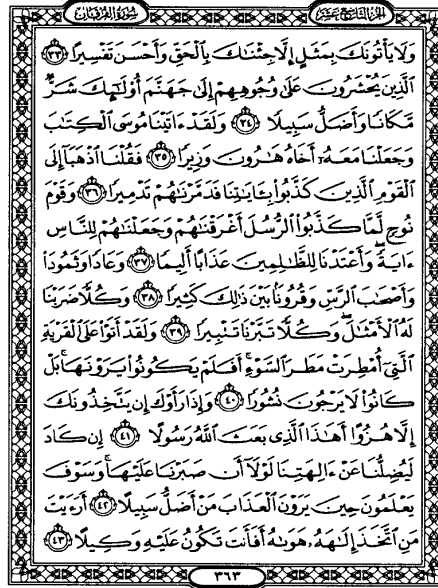 سورة الفرقان
الجزء التاسع عشر
وَلَا يَأْتُونَكَ بِمَثَلٍ إِلَّا جِئْنَٰكَ بِٱلْحَقِّ وَأَحْسَنَ تَفْسِيرًا ٣٣
ٱلَّذِينَ يُحْشَرُونَ عَلَىٰ وُجُوهِهِمْ إِلَىٰ جَهَنَّمَ أُو۟لَٰٓئِكَ شَرٌّ
مَّكَانًا وَأَضَلُّ سَبِيلًا ٣٤ وَلَقَدْ ءَاتَيْنَا مُوسَى ٱلْكِتَٰبَ
وَجَعَلْنَا مَعَهُۥٓ أَخَاهُ هَٰرُونَ وَزِيرًا ٣٥ فَقُلْنَا ٱذْهَبَآ إِلَى
ٱلْقَوْمِ ٱلَّذِينَ كَذَّبُوا۟ بِـَٔايَٰتِنَا فَدَمَّرْنَٰهُمْ تَدْمِيرًا ٣٦ وَقَوْمَ
نُوحٍ لَّمَّا كَذَّبُوا۟ ٱلرُّسُلَ أَغْرَقْنَٰهُمْ وَجَعَلْنَٰهُمْ لِلنَّاسِ
ءَايَةً ۖ وَأَعْتَدْنَا لِلظَّٰلِمِينَ عَذَابًا أَلِيمًا ٣٧ وَعَادًا وَثَمُودَا۟
وَأَصْحَٰبَ ٱلرَّسِّ وَقُرُونًۢا بَيْنَ ذَٰلِكَ كَثِيرًا ٣٨ وَكُلًّا ضَرَبْنَا
لَهُ ٱلْأَمْثَٰلَ ۖ وَكُلًّا تَبَّرْنَا تَتْبِيرًا ٣٩ وَلَقَدْ أَتَوْا۟ عَلَى ٱلْقَرْيَةِ
ٱلَّتِىٓ أُمْطِرَتْ مَطَرَ ٱلسَّوْءِ ۚ أَفَلَمْ يَكُونُوا۟ يَرَوْنَهَا ۚ بَلْ
كَانُوا۟ لَا يَرْجُونَ نُشُورًا ٤٠ وَإِذَا رَأَوْكَ إِن يَتَّخِذُونَكَ
إِلَّا هُزُوًا أَهَٰذَا ٱلَّذِى بَعَثَ ٱللَّهُ رَسُولًا ٤١ إِن كَادَ
لَيُضِلُّنَا عَنْ ءَالِهَتِنَا لَوْلَآ أَن صَبَرْنَا عَلَيْهَا ۚ وَسَوْفَ
يَعْلَمُونَ حِينَ يَرَوْنَ ٱلْعَذَابَ مَنْ أَضَلُّ سَبِيلًا ٤٢ أَرَءَيْتَ
مَنِ ٱتَّخَذَ إِلَٰهَهُۥ هَوَىٰهُ أَفَأَنتَ تَكُونُ عَلَيْهِ وَكِيلًا ٤٣
٣٦٣